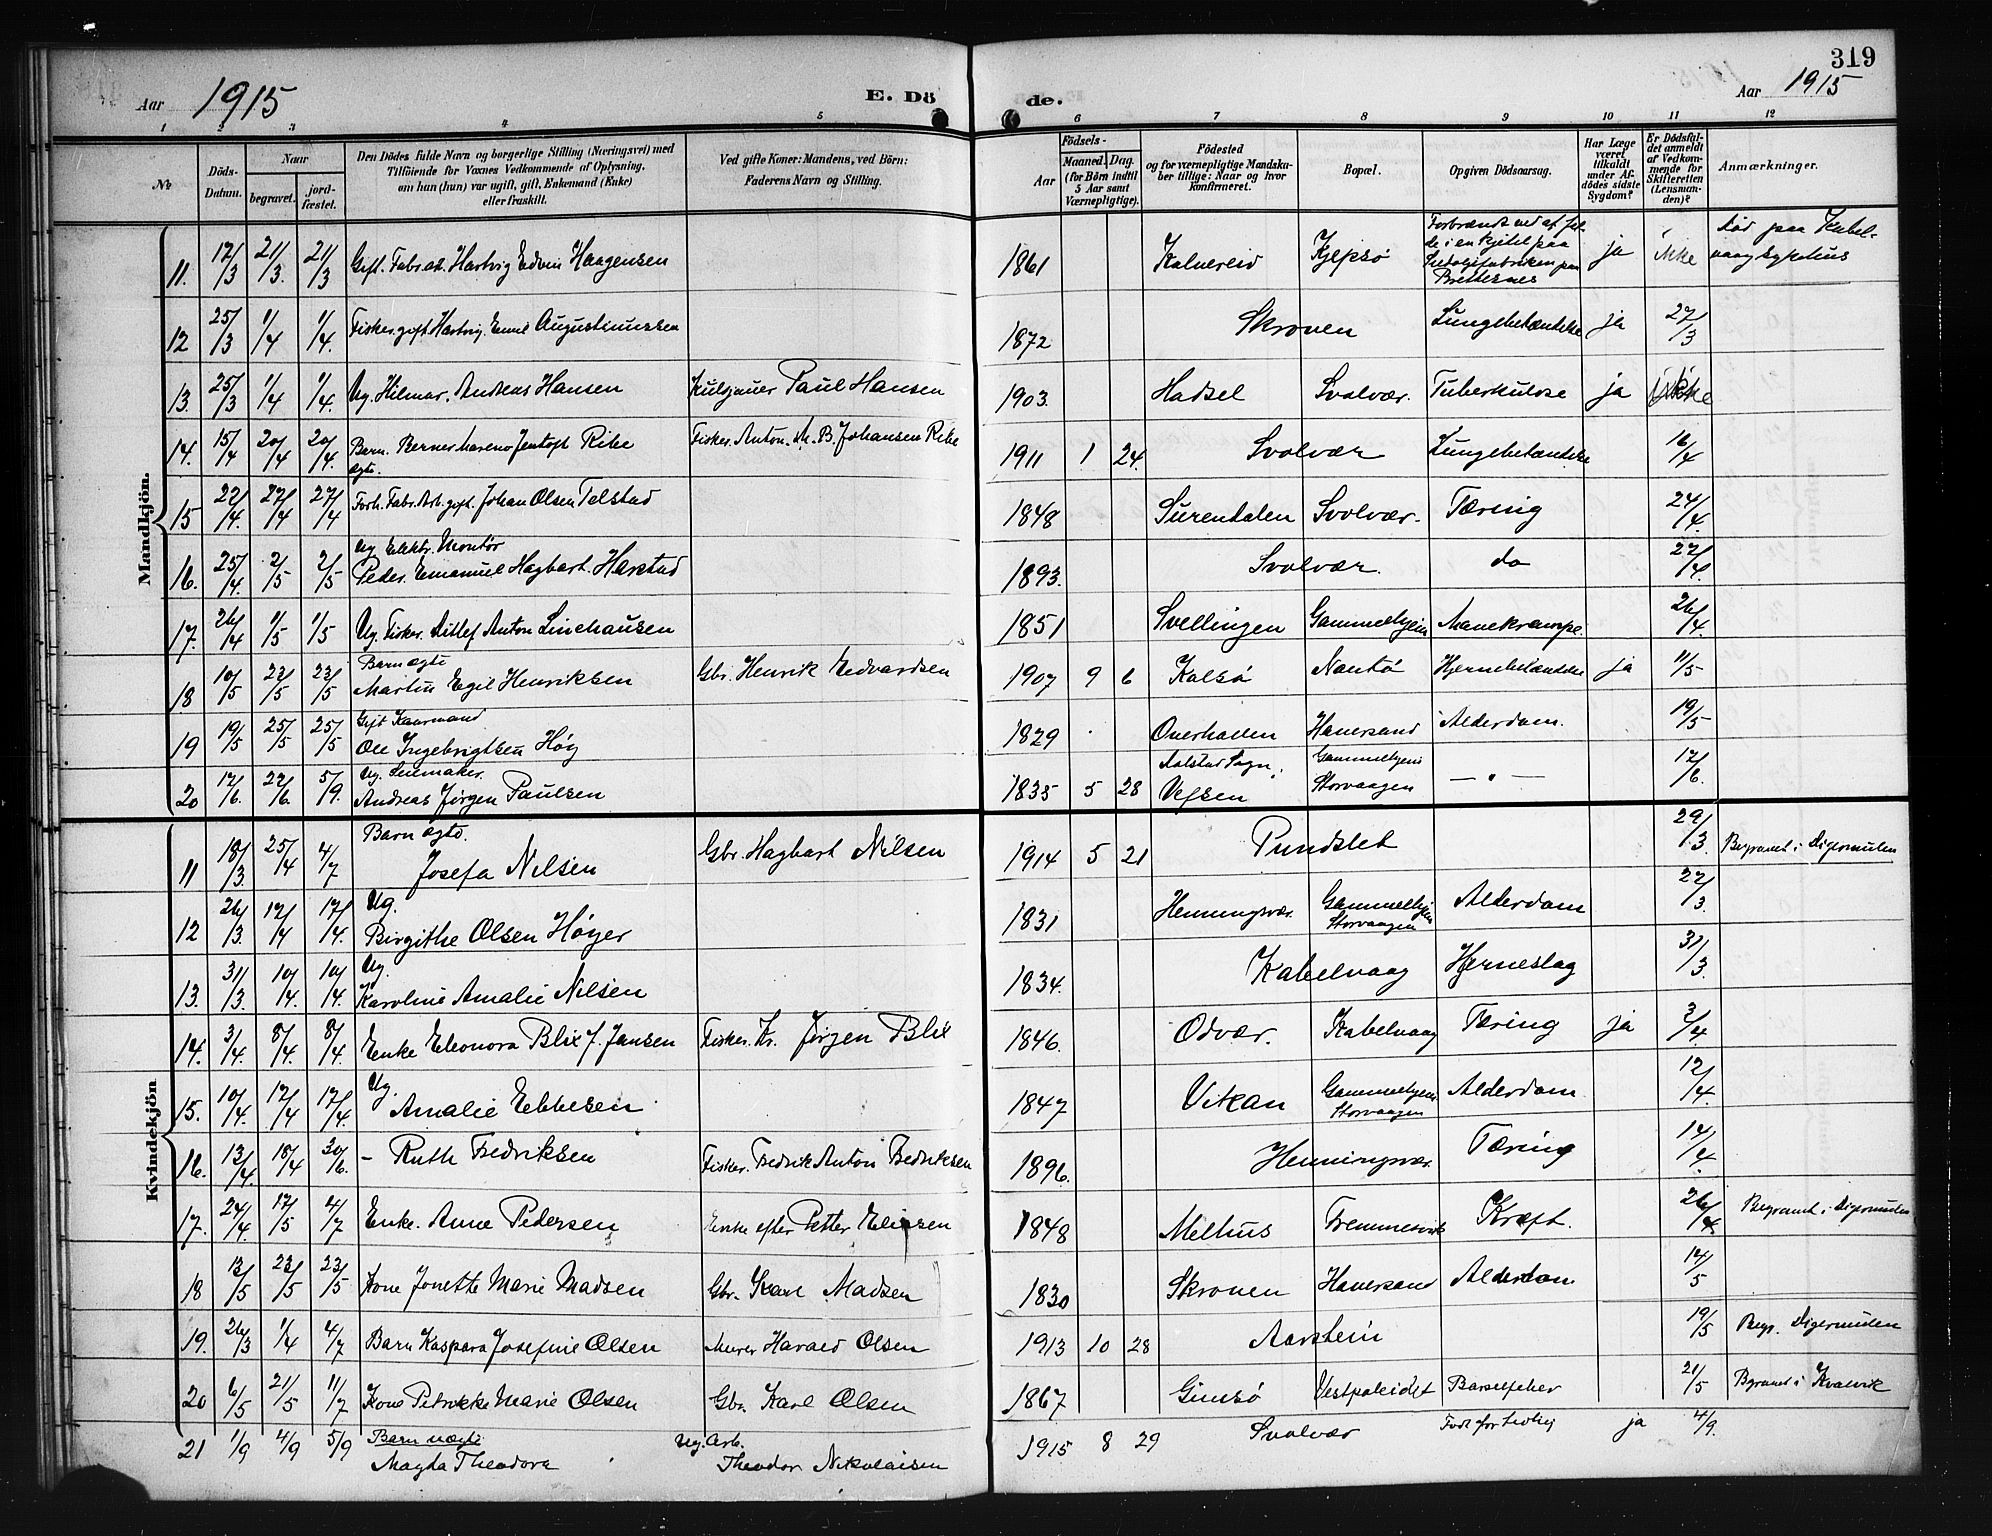 319
Aar 1915
E. Dö
de.
Aar 1915
1 2 3 4 5 6 7 8 9 10 11 12
№
Döds-Datum.
Naar
begravet.
jord-fæstet.
Den Dödes fulde Navn og borgerlige Stilling (Næringsvei) med
Tilföiende for Voxnes Vedkommende af Oplysning,
om han (hun) var ugift, gift, Enkemand (Enke)
eller fraskilt.
Ved gifte Koner: Mandens, ved Börn:
Faderens Navn og Stilling.
Födsels-
Aar
Maaned. Dag.
(for Börn indtil
5 Aar samt
Værnepligtige).
Födested
og for værnepligtige Mandska-
ber tillige: Naar og hvor
konfirmeret.
Bopæl.
Opgiven Dödsaarsag.
Har Læge
været
tilkaldt
under Af-
dödes sidste
Sygdom?
Er Dödsfal-
det anmeldt
af Vedkom-
mende for
Skifteretten
(Lensman-
den)?
Anmærkninger.
Mandkjön.
11. 17/3 21/3. 21/3 Gift. Hartvig Edvin Haagensen 1861 Kalvereid Kjepsø Forbrændt ja ikke Död paa Kabelvaag sykehus
12 25/3 1/4 1/4. Fisker. gift. Hartvig. Emil Augustinussen 1872 Skroven Lungebetændelse ja 27/3
13. 25/3 1/4 1/4. Ug. Hilmar. Andreas Hansen Paul Hansen 1903. Hadsel Svolvær. Tuberkulose ja ikke
14. 15/4 20/4 20/4. Barn ægte. Jentoft Ribe Fisker. Anton. M. B. Johansen Ribe 1911 1 24. Svolvær Lungebetændelse 16/4
15 22/4. 27/4 27/4 Forh. Fabr. Arb. gift. Johan Olsen Telstad 1848 Surendalen Svolvær. Tæring 24/4.
16. 25/4 2/5 2/5 Ug Elektr. Montör Peder. Emanuel Hagbart Harstad 1893. Svolvær. do 27/4
17. 26/4 1/5 1/5 Ug. Fisker. Ditlef Anton Linehausen 1851 Svellingen Gammelhjem Mavekrampe. 26/4.
18 10/5 22/5 23/5 Barn ægte Martin Egil Henriksen Gbr. Henrik Edvardsen 1907 9 6 Kalsø Hjernebetændelse ja 11/5
19 19/5 25/5 25/5 Gift Kaumand Ole Ingebrigtsen Høy 1829 Overhallen Haversand Alderdom. 19/5
20 17/6. 22/6 5/9. Ug. Andreas Jørgen Paulsen 1835 5 28 Alstad Sogn, Vefsen Gammelhjem Storvaagen — " — 17/6.
Kvindekjön.
11 18/3 25/4 4/7 Barn ægte. Josefa Nilsen Gbr. Hagbart Nilsen 1914 5 21 Pundslet 29/3. Begravet i Digermulen
12 26/3 17/4 17/4. Ug. Birgithe Olsen Høyer 1831 Henningsvær. Gammelhjem Storvaagen Alderdom 27/3.
13. 31/3 10/4. 10/4. Ug. Karoline Amalie Nilsen 1834. Kabelvaag Hjerneslag 31/3.
14. 3/4. 8/4. 8/4. Enke Eleonora Blix f. Jansen Fisker. Kr. Jörgen Blix 1846. Odvær. Kabelvaag Tæring ja 3/4.
15. 10/4. 17/4 17/4. Ug Amalie Ebbesen 1847 Vikan Gammelhjem Storvaagen Alderdom. 12/4.
16. 13/4. 18/4 30/6. – Ruth Fredriksen Fisker. Fredrik Anton Fredriksen 1896. Henningsvær. Tæring 14/4.
17. 24/4 17/5 4/7 Enke. Anne Pedersen Enke efter Petter Eliesen 1848 Melhus Kræft. 26/4. Begravet i Digermulen
18 13/5 23/5 23/5 Kone Jonette Marie Madsen Gbr. Karl Madsen 1830 Skroven Haversand Alderdom 14/5
19. 26/3 1/4 4/7 Barn Kaspara Josefine Olsen Murer Harald Olsen 1913 10 28 Aarstein 19/5 Begr. Digermulen
20 6/5 21/5 11/7 Kone Petrikke Marie Olsen Gbr. Karl Olsen 1867 Gimsö Vestpoleidet Barselfeber 21/5 Begravet i Kvalvik
21 1/9 4/9 5/9 Barn uægte Magda Theodora Ug. Arb. Theodor Nikolaisen 1915 8 29 Svolvær Født for tidlig ja 4/9.